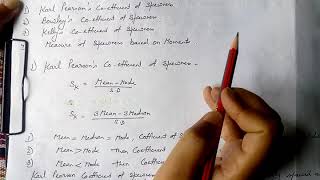 1) Karl Pearson's Co-efficient of Skewness
2) Bowley's Co-efficient of Skewness
3) Kelly's Co-efficient of Skewness
Measure of Skewness based on Moment
1) Karl Pearson's Co-efficient of Skewness -
Sk = Mean - Mode
S.D
Sk = 3Mean - 3Median
S.D
1) Mean = Median = Mode, Coefficient of S
2) Mean > Mode - then Coefficient
3) Mean < Mode - then Coeff
Karl Pearson Coefficient of Skewness